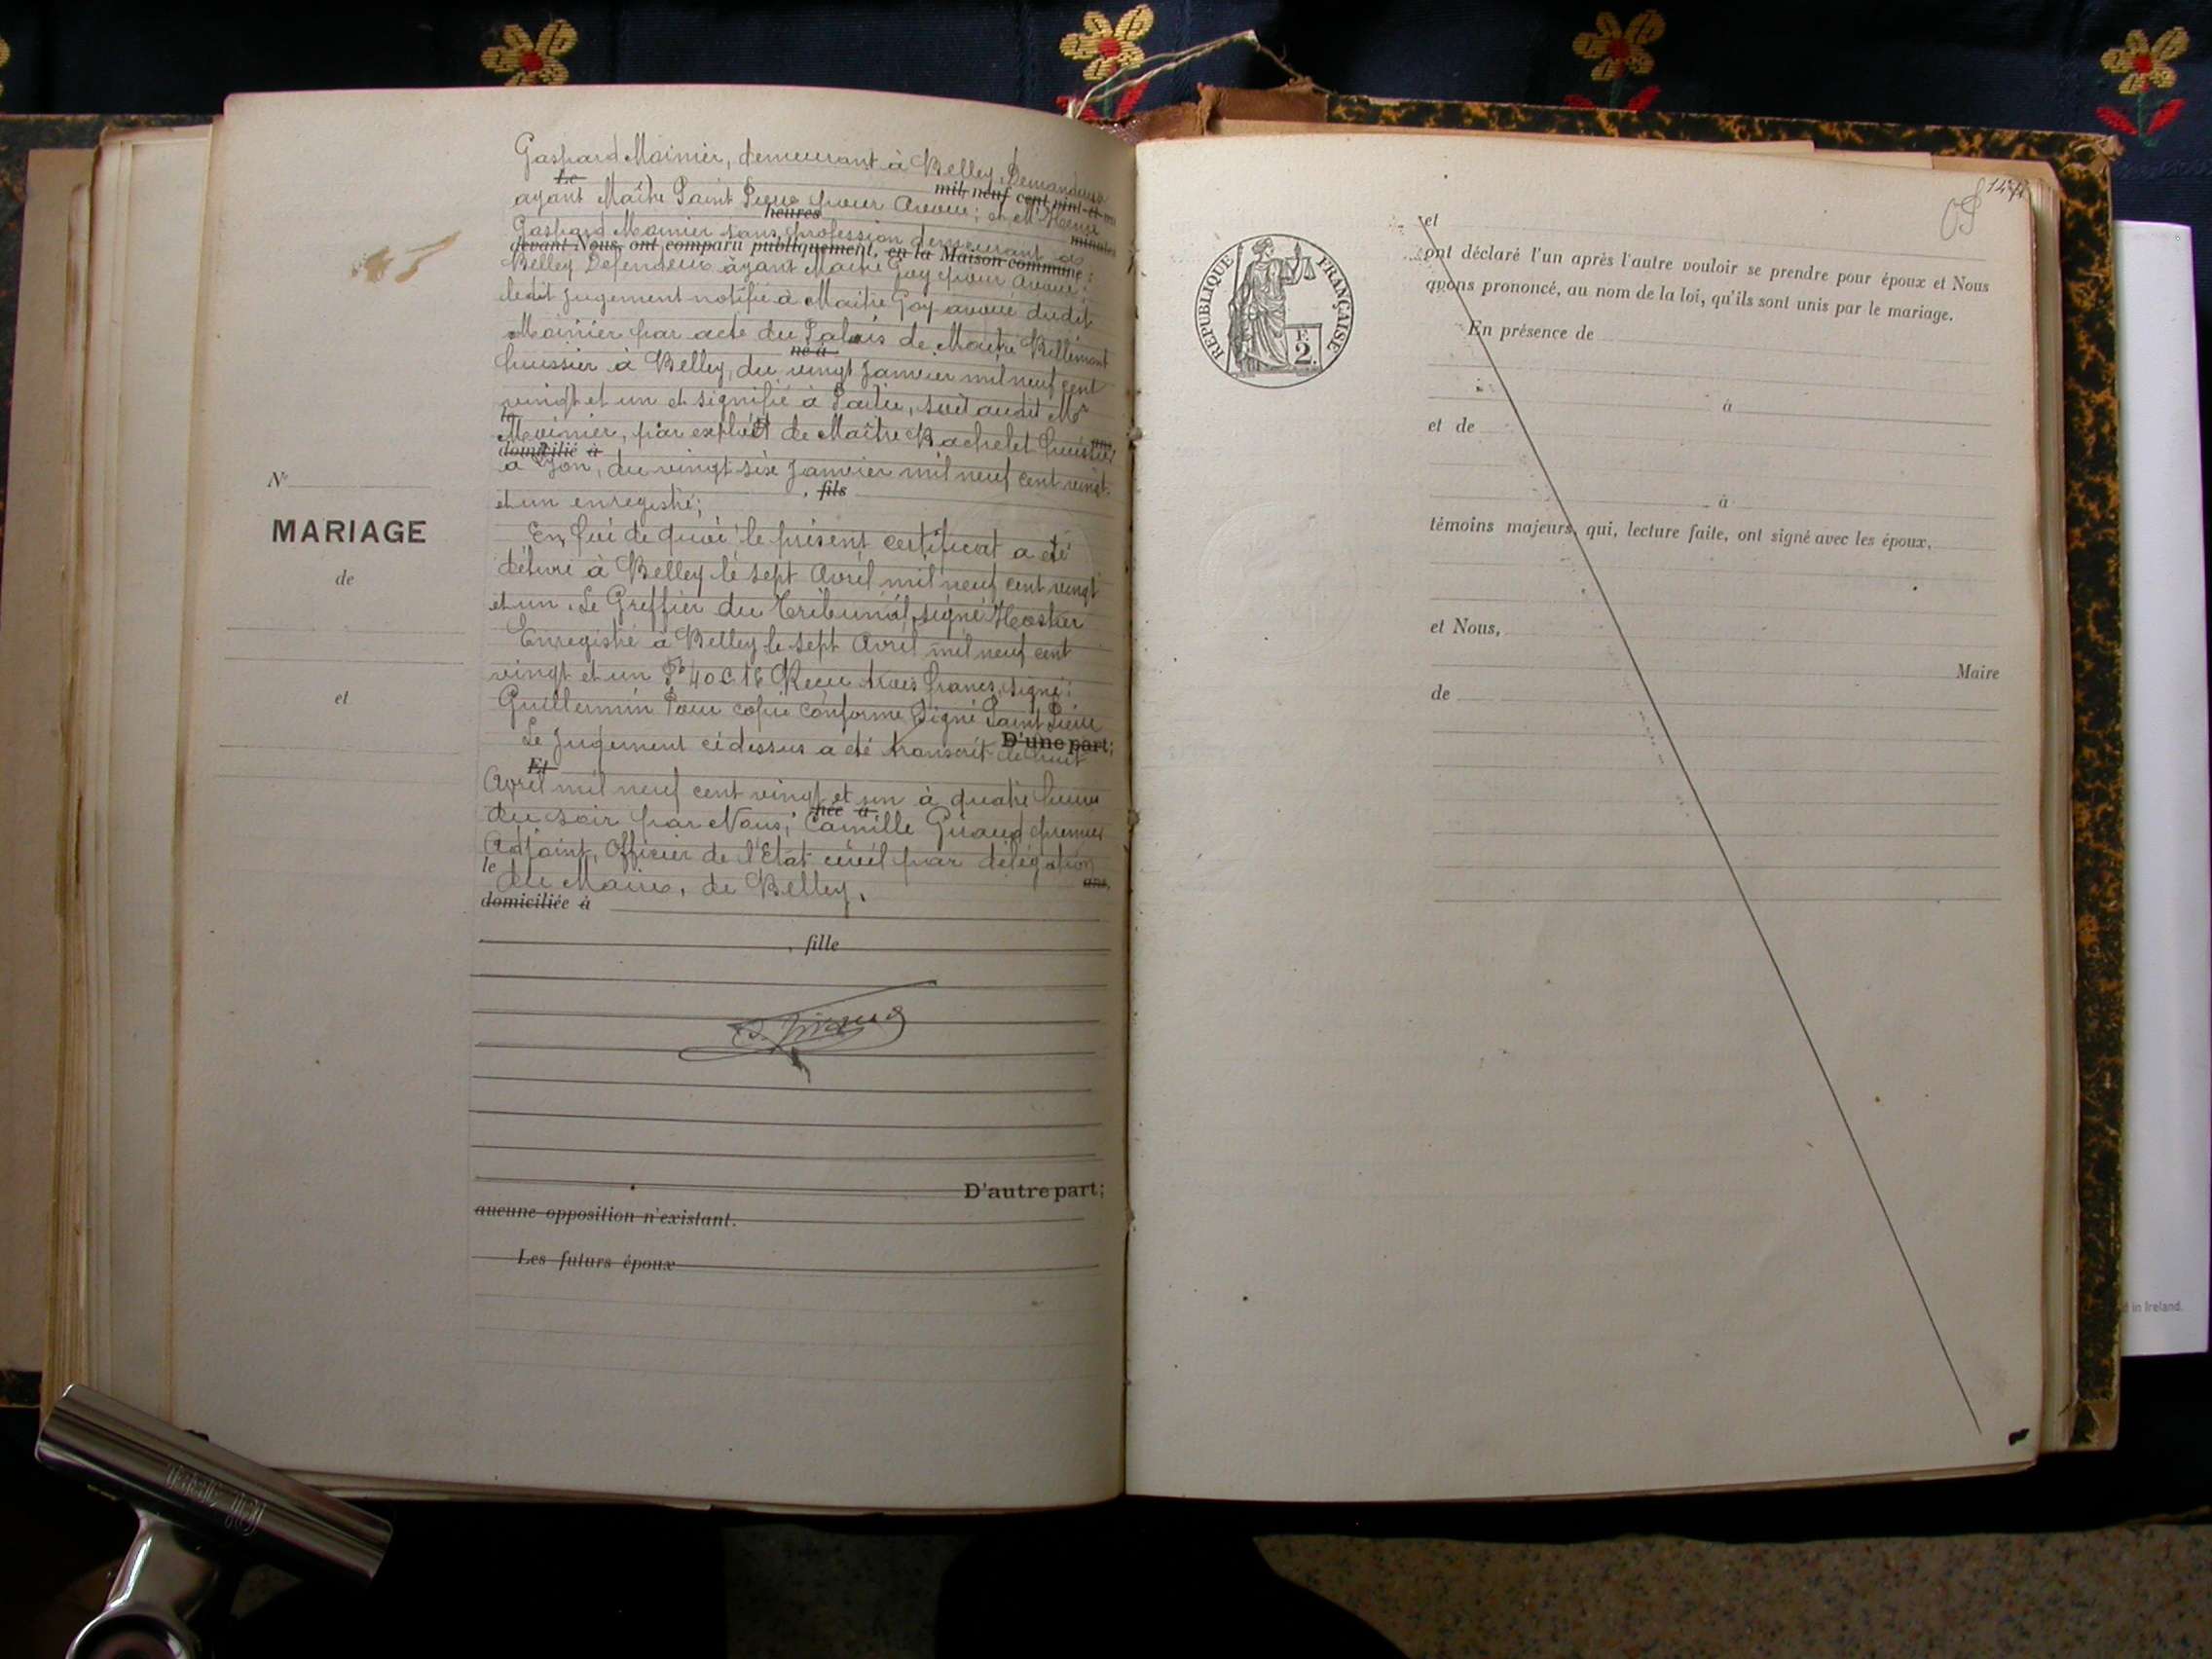 Gaspard Moinier, demeurant à Belley, Demanderesse
Le mil neuf cent vint-et-un
ayant Maître Saint Pierre pour Avoué; et Mr
heures
Gaspard Moinier sans profession demeurant à
minutes
devant Nous, ont comparu publiquement, en la Maison commune:
Belley Defendeur ayant Maitre Goy pour avoué;
ledit Jugement notifié à Maitre Goy avoué dudit
Moinier par acte du Palais de Maitre Billemont
né à
huissier à Belley, du vingt Janvier mil neuf cent
vingt et un et signifié à Partie, soit audit Mr
le
Moinier, par exploit de Maître Bachelet huissier
ans,
domicilié à
à Lyon, du vingt six Janvier mil neuf cent vingt
, fils
et un enregistré;
En foi de quoi le présent certificat a été
délivré à Belley le sept Avril mil neuf cent vingt
et un. Le Greffier du Tribunal, signé
Enregistré à Belley le sept Avril mil neuf cent
vingt et un Fo 40 C 16 Reçu trois francs, signé:
Guillermin Pour copie conforme Signé Saint Pierre
D'une part;
Le Jugement ci dessus a été transcrit le huit
Et
Avril mil neuf cent vingt et un à quatre heures
née à
du soir par Nous, Camille Giraud premier
Adjoint, Officier de l'Etat civil par délégation
le
du Maire, de Belley.
ans,
domiciliée à
, fille
C. Giraud
D'autre part;
aucune opposition n'existant.
Les futurs époux
No
MARIAGE
de
et
RÉPUBLIQUE FRANÇAISE
F.
2.
et
ont déclaré l'un après l'autre vouloir se prendre pour époux et Nous
avons prononcé, au nom de la loi, qu'ils sont unis par le mariage.
En présence de
à
et de
à
témoins majeurs, qui, lecture faite, ont signé avec les époux,
et Nous,
Maire
de
in Ireland.